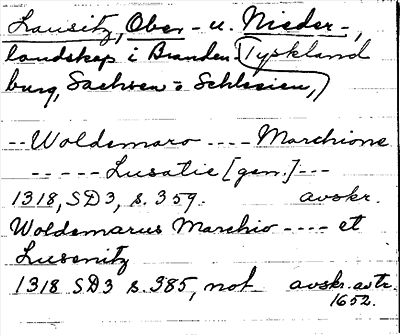 Lausitz, Ober- u. Nieder-,
landskap i Branden- Tyskland
burg, Sachsen o Schlesien,
-- Woldemaro ---- Marchione
----- Lusatie [gen.] ---
1318, SD3, s. 359. avskr.
Woldemarus Marchio ---- et
Lusenitz
1318 SD3 s. 385, not avskr. avtr.
1652.